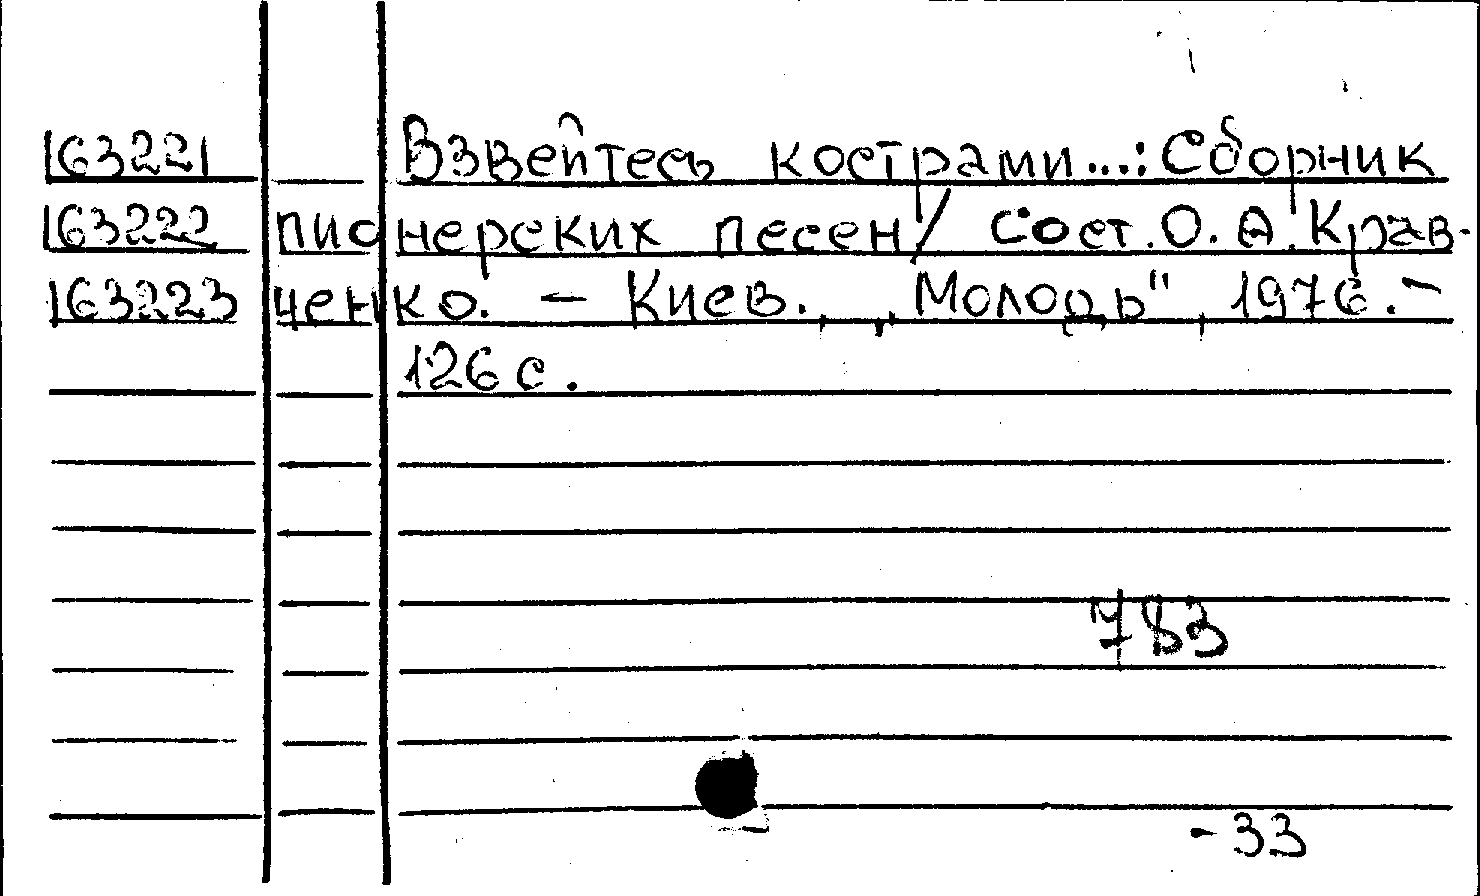 163221 Взвейтесь кострами...: Сборник
163222 пионерских песен / Сост. О. А. Крав-
163223 ченко. - Киев. „Молодь", 1976. -
126 с.
783
- 33